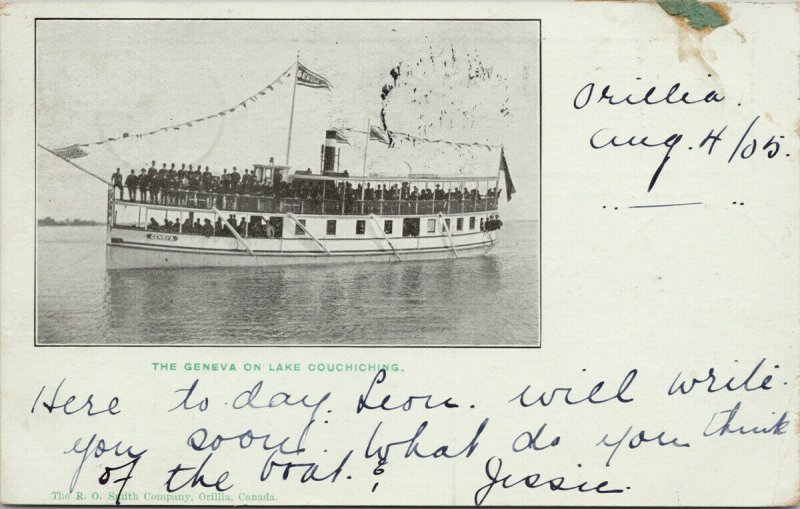 GENEVA
GENEVA
Orillia.
Aug. 4/05.
THE GENEVA ON LAKE COUCHICHING.
Here to day. Leon. will write.
you soon. What do you think
of the boat. & Jessie.
The R. O. Smith Company, Orillia, Canada.